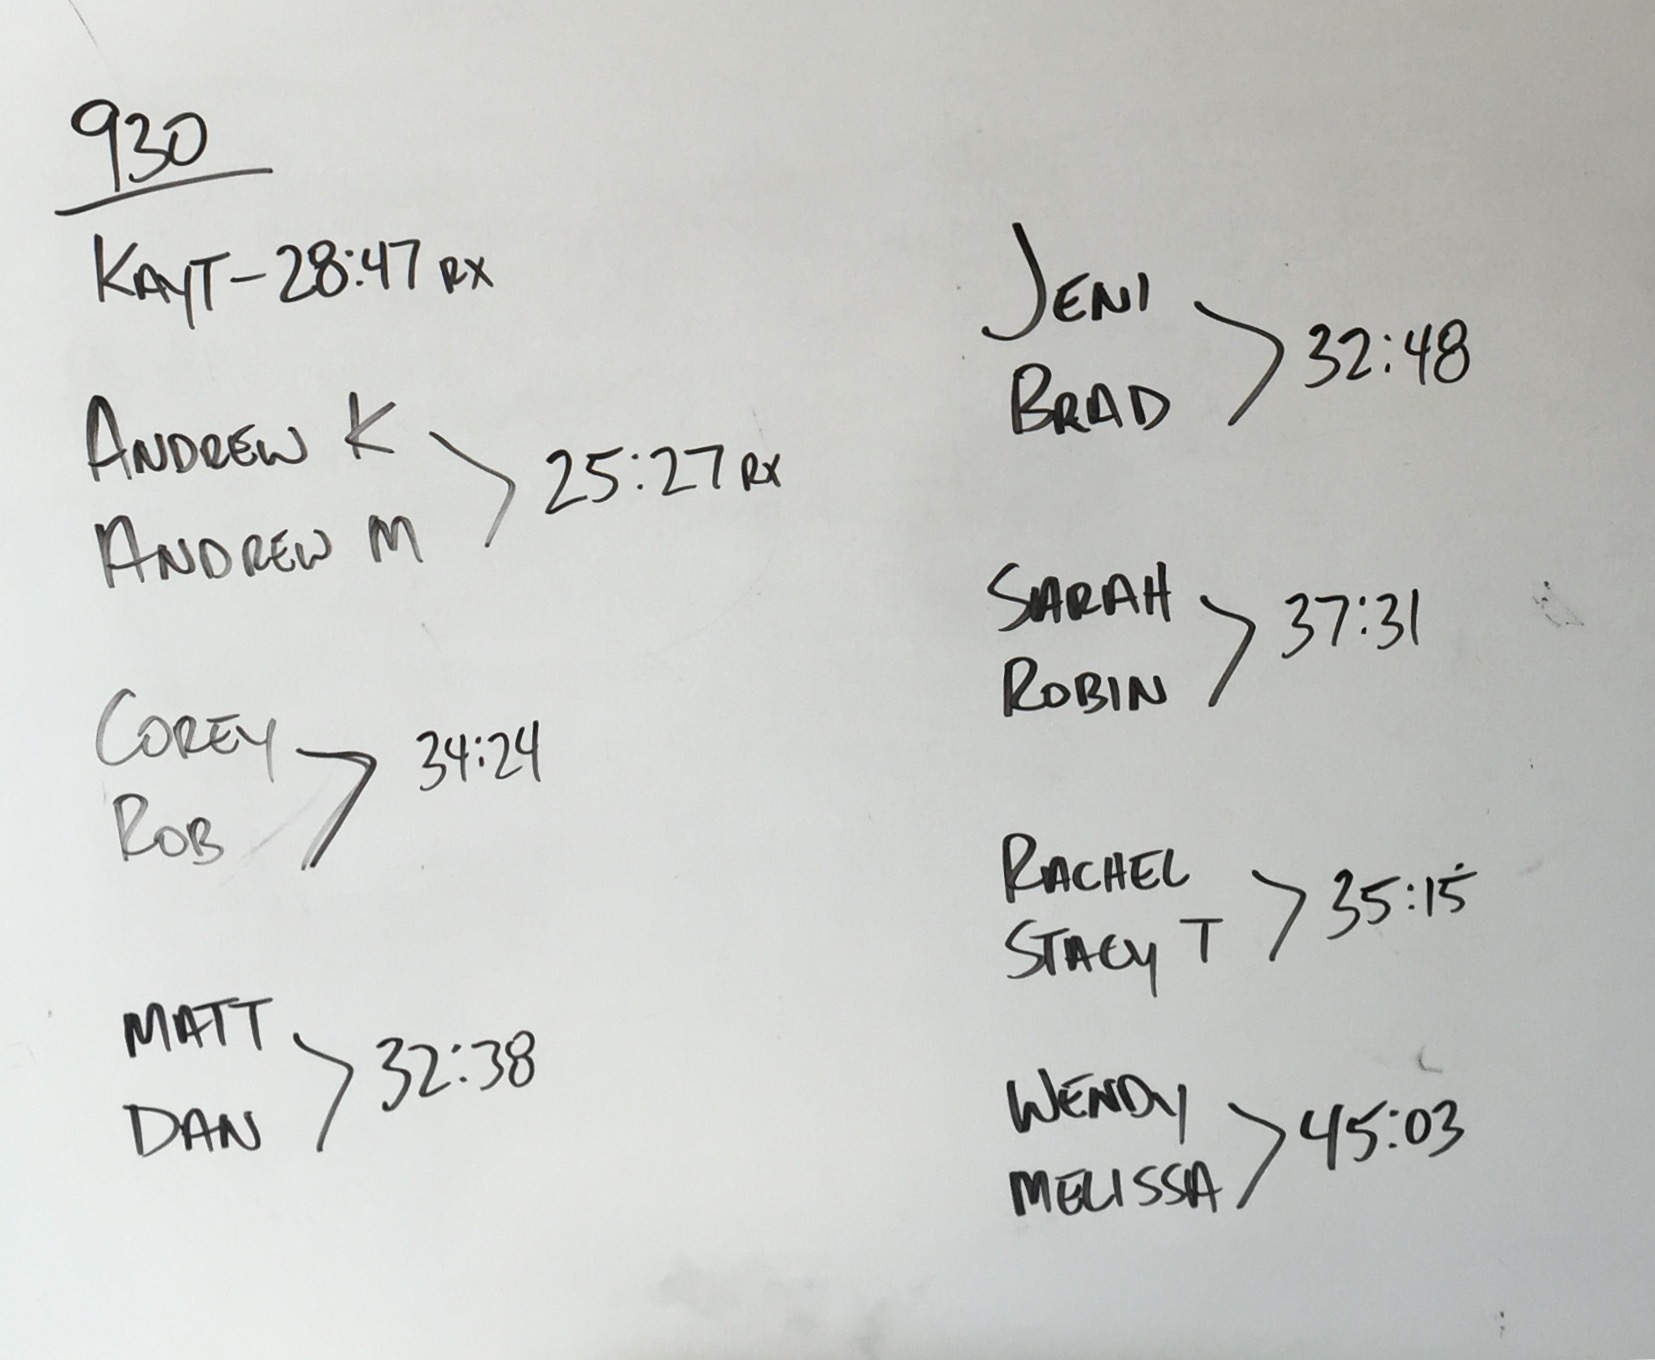 930
KAYT - 28:47 RX
ANDREW K
ANDREW M
25:27 RX
COREY
ROB
34:24
MATT
DAN
32:38
JENI
BRAD
32:48
SARAH
ROBIN
37:31
RACHEL
STACY T
35:15
WENDY
MELISSA
45:03